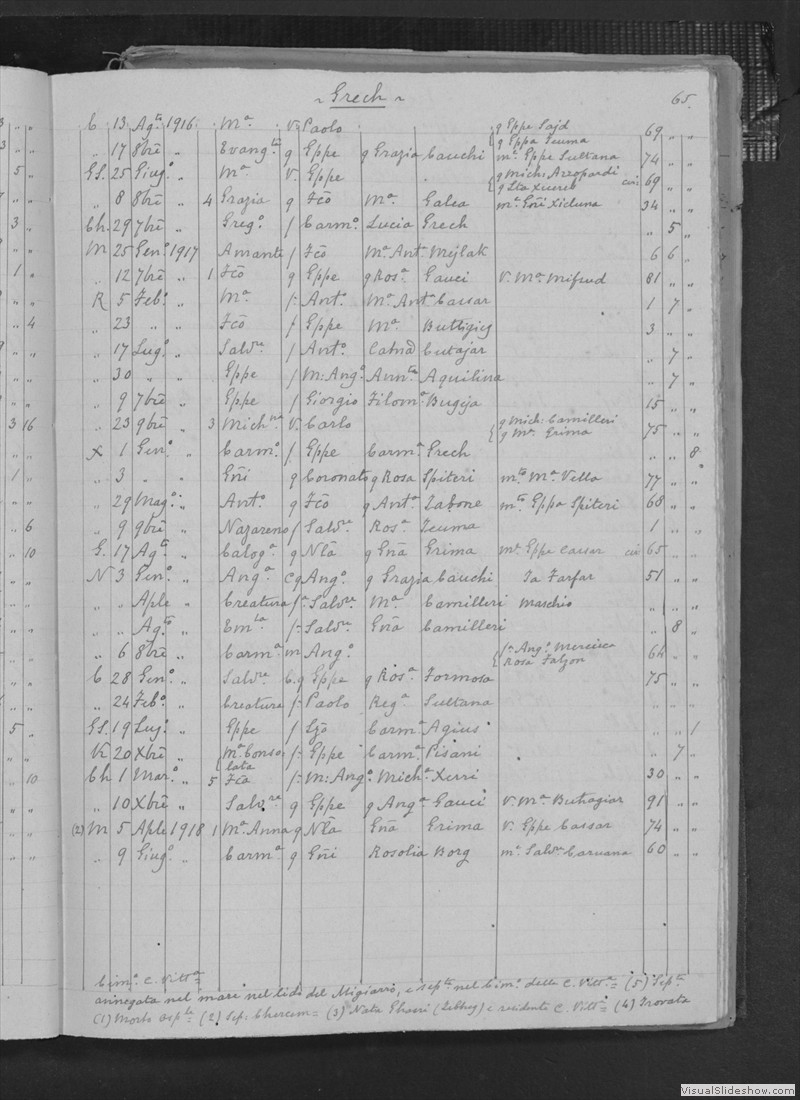 ~ Grech ~ 65.
C 13 Agto 1916 Ma v. Paolo { q Eppe Sajd 69 " "
q Eppa Teuma
" 17 8bre " Evangta q Eppe q Grazia Cauchi ma Eppe Sultana 74 " "
GS. 25 Giugo " Ma v. Eppe { q Mich: Azzopardi 69 " "
q Sta Xuereb
" 8 8bre " 4 Grazia q Fco Ma Galea ma Gnni Xicluna 34 " "
Ch. 29 7bre " Grego. f Carmo. Lucia Grech " 5 "
M 25 Geno. 1917 Amante f Fco Ma Ant. Mejlak 6 6 "
" 12 7bre " 1 Fco q Eppe q Rosa Gauci v. Ma Mifsud 81 " "
R 5 Febo. " Ma f: Anto. Ma Ant Cassar 1 7 "
" 23 " " Fco f Eppe Ma Buttigieg 3 " "
" 17 Lugo. " Salvre f Anto. Catna Cutajar " 7 "
" 30 " " Eppe f M: Ango. Annta Aquilina " 7 "
" 9 7bre " Eppe f Giorgio Filoma Bugeja 15 " "
" 23 9bre " 3 Michna v. Carlo { q Mich: Camilleri 75 " "
q Ma Grima
X 1 Geno. " Carmo. f. Eppe Carma Grech " " 8
" 3 " " Gnni q Coronato q Rosa Spiteri mto Ma Vella 77 " "
" 29 Mago. " Anto. q Fco q Anta Zabone mto Eppa Spiteri 68 " "
" 9 9bre " Nazareno f Salvre Rosa Teuma 1 " "
G. 17 Agto " Caloga q Nla q Gna Grima ma Eppe Cassar 65 " "
N 3 Geno. " Anga q Ango. q Grazia Cauchi Ta Farfar 51 " "
" " Aple " Creatura f: Salvre Ma Camilleri Maschio " " "
" " Agto " Emla f: Salvre Gna Camilleri " 8 "
" 6 8bre " Carma m Ango. { f: Ango. Mercieca 64 " "
Rosa Falzon
C 28 Geno. " Salvre q Eppe q Rosa Formosa 75 " "
" 24 Febo. " Creatura f: Paolo Rega Sultana " " "
GS. 19 Lugo. " Eppe f Carma Agius " " 1
Vi 20 Xbre " Ma Conso f: Eppe Carma Pisani " 7 "
lata
Ch 1 Maro. " 5 Fca f: M: Ango. Micha Xerri 30 " "
" 10 Xbre " Salvre q Eppe q Anga Gauci v. Ma Buhagiar 91 " "
(2) M 5 Aple 1918 1 Ma Anna q Nla Gna Grima v. Eppe Cassar 74 " "
" 9 Giugo. " Carma q Gnni Rosolia Borg ma Salvre Caruana 60 " "
Cimo. C. Vitta=
annegata nel mare nel lido del Migiarro, e septa nel Cimo. della C. Vitta= (5) Septa
(1) Morto Osple (2) Sep: Chercem= (3) Nata Ghasri (Zebbug) e residente C. Vitta= (4) Trovata
VisualSlideshow.com